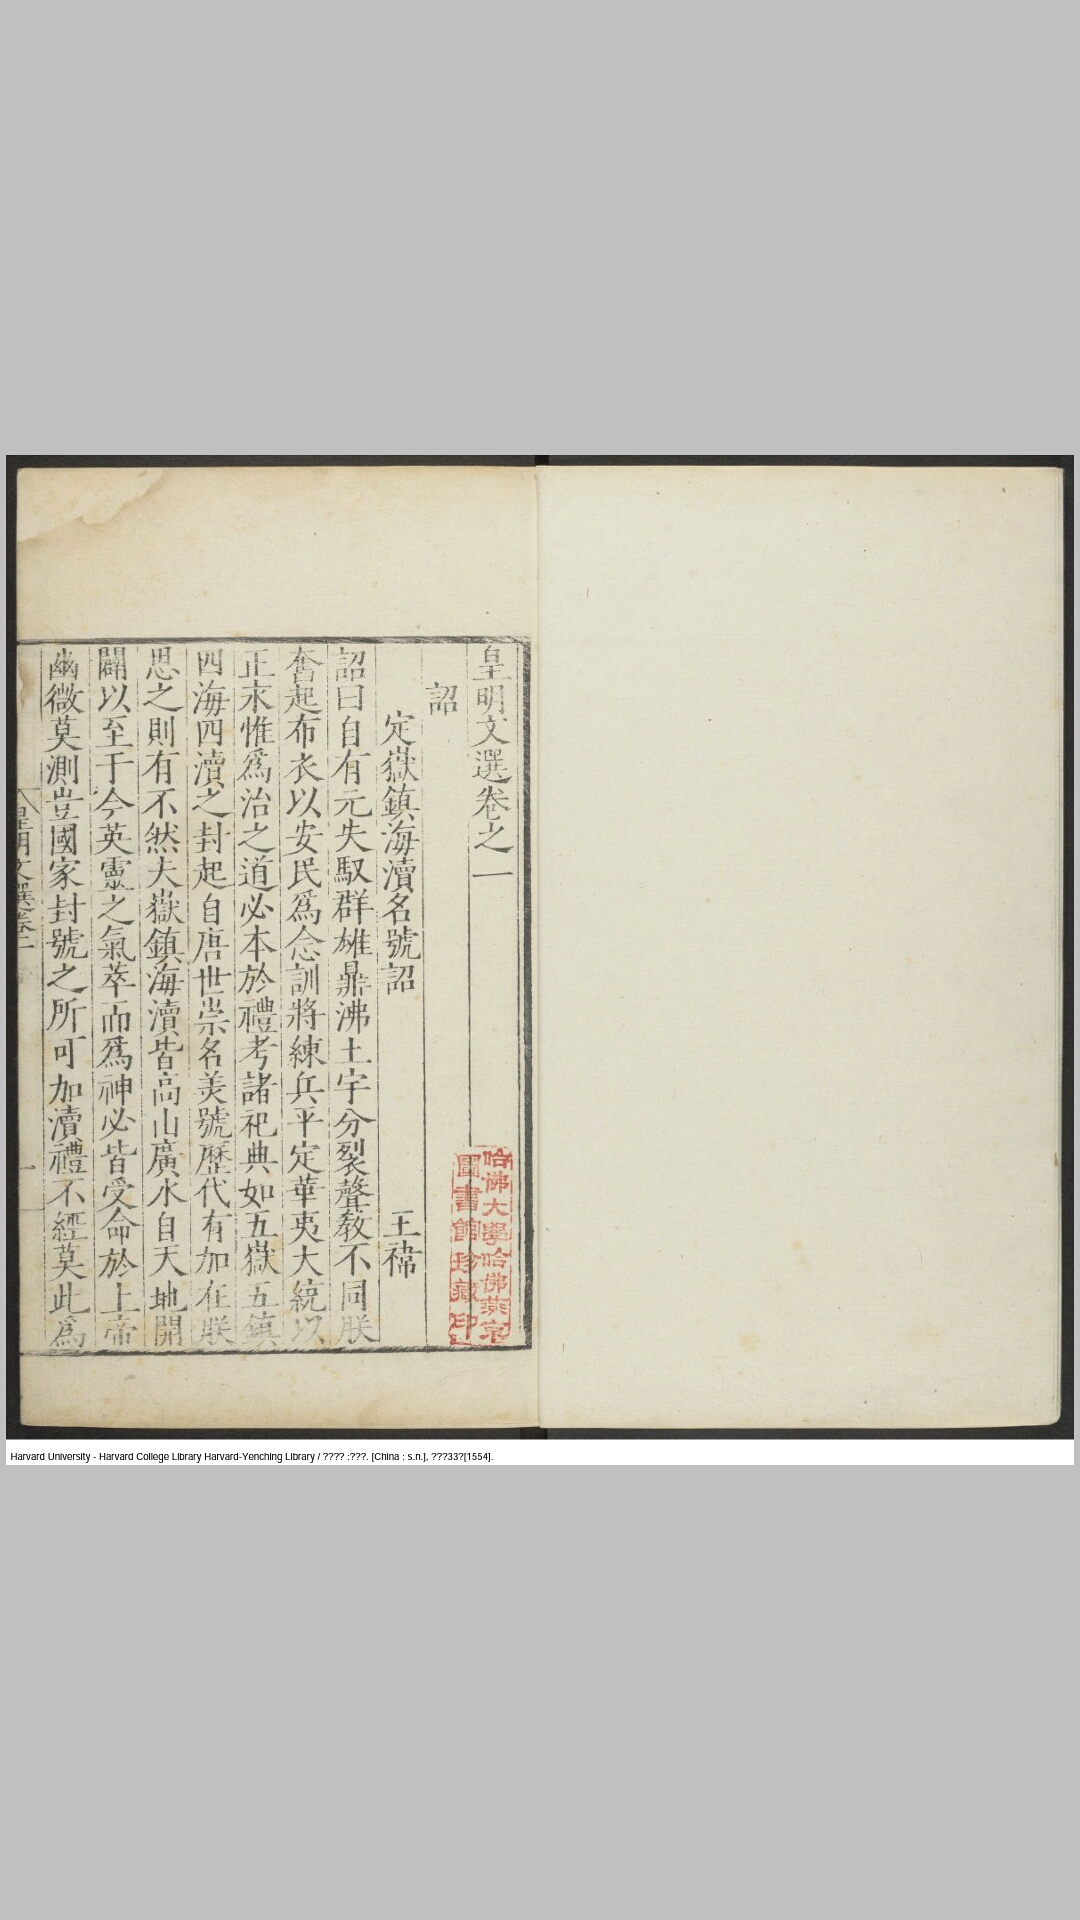 皇明文選卷之一
詔
定嶽鎮海瀆名號詔 王禕
詔曰自有元失馭群雄鼎沸土宇分裂聲教不同朕
奮起布衣以安民爲念訓將練兵平定華夷大統以
正永惟爲治之道必本於禮考諸祀典如五嶽五鎮
四海四瀆之封起自唐世崇名美號歷代有加在朕
思之則有不然夫嶽鎮海瀆皆高山廣水自天地開
闢以至于今英靈之氣萃而爲神必皆受命於上帝
幽微莫測豈國家封號之所可加瀆禮不經莫此爲
皇明文選卷一
一
哈佛大學哈佛燕京
圖書館珍藏印
Harvard University - Harvard College Library Harvard-Yenching Library / ???? :???. [China : s.n.], ???33?[1554].